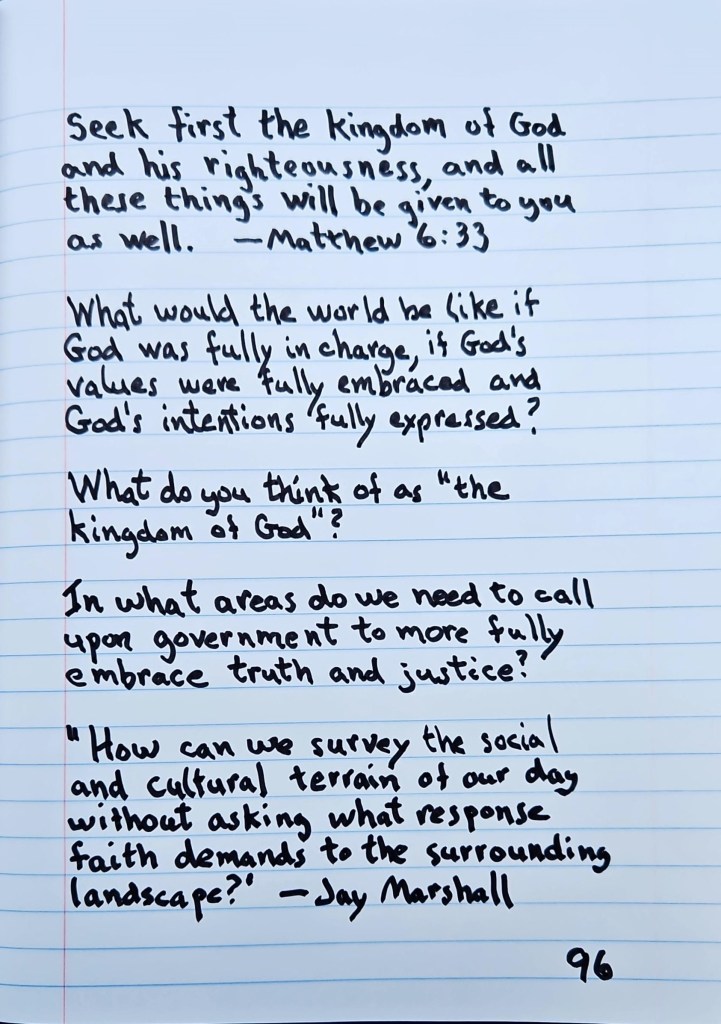 Seek first the kingdom of God
and his righteousness, and all
these things will be given to you
as well. —Matthew 6:33
What would the world be like if
God was fully in charge, if God's
values were fully embraced and
God's intentions fully expressed?
What do you think of as "the
kingdom of God"?
In what areas do we need to call
upon government to more fully
embrace truth and justice?
"How can we survey the social
and cultural terrain of our day
without asking what response
faith demands to the surrounding
landscape?" —Jay Marshall
96